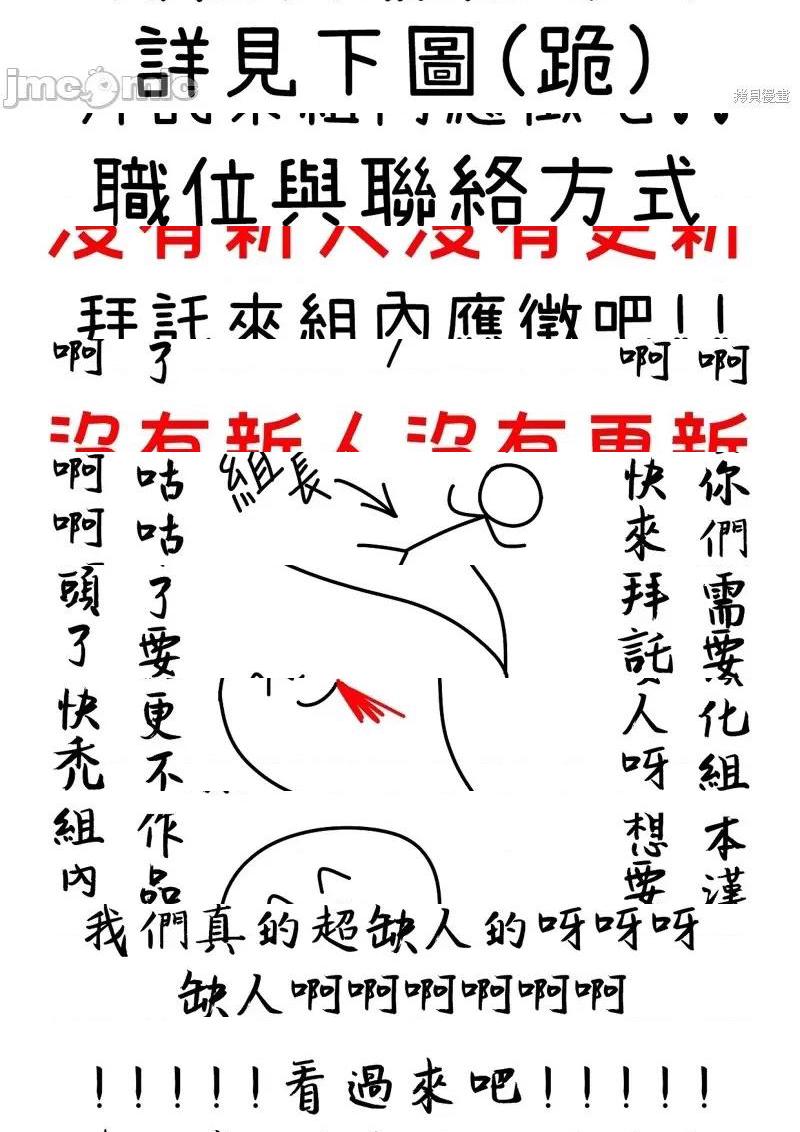 詳見下圖(跪)
jmcomic
拷貝漫畫
職位與聯絡方式
沒有新人沒有更新
拜託來組內應徵吧!!
啊 了 啊 啊
沒有新人沒有更新
啊 咕 組長 快 你
啊 咕 來 們
頭 了 拜 需
了 要 託 要
快 更 人 化
禿 不 呀 組
組 作 想 本
內 品 要 漢
我們真的超缺人的呀呀呀
缺人啊啊啊啊啊啊
!!!!!看過來吧!!!!!